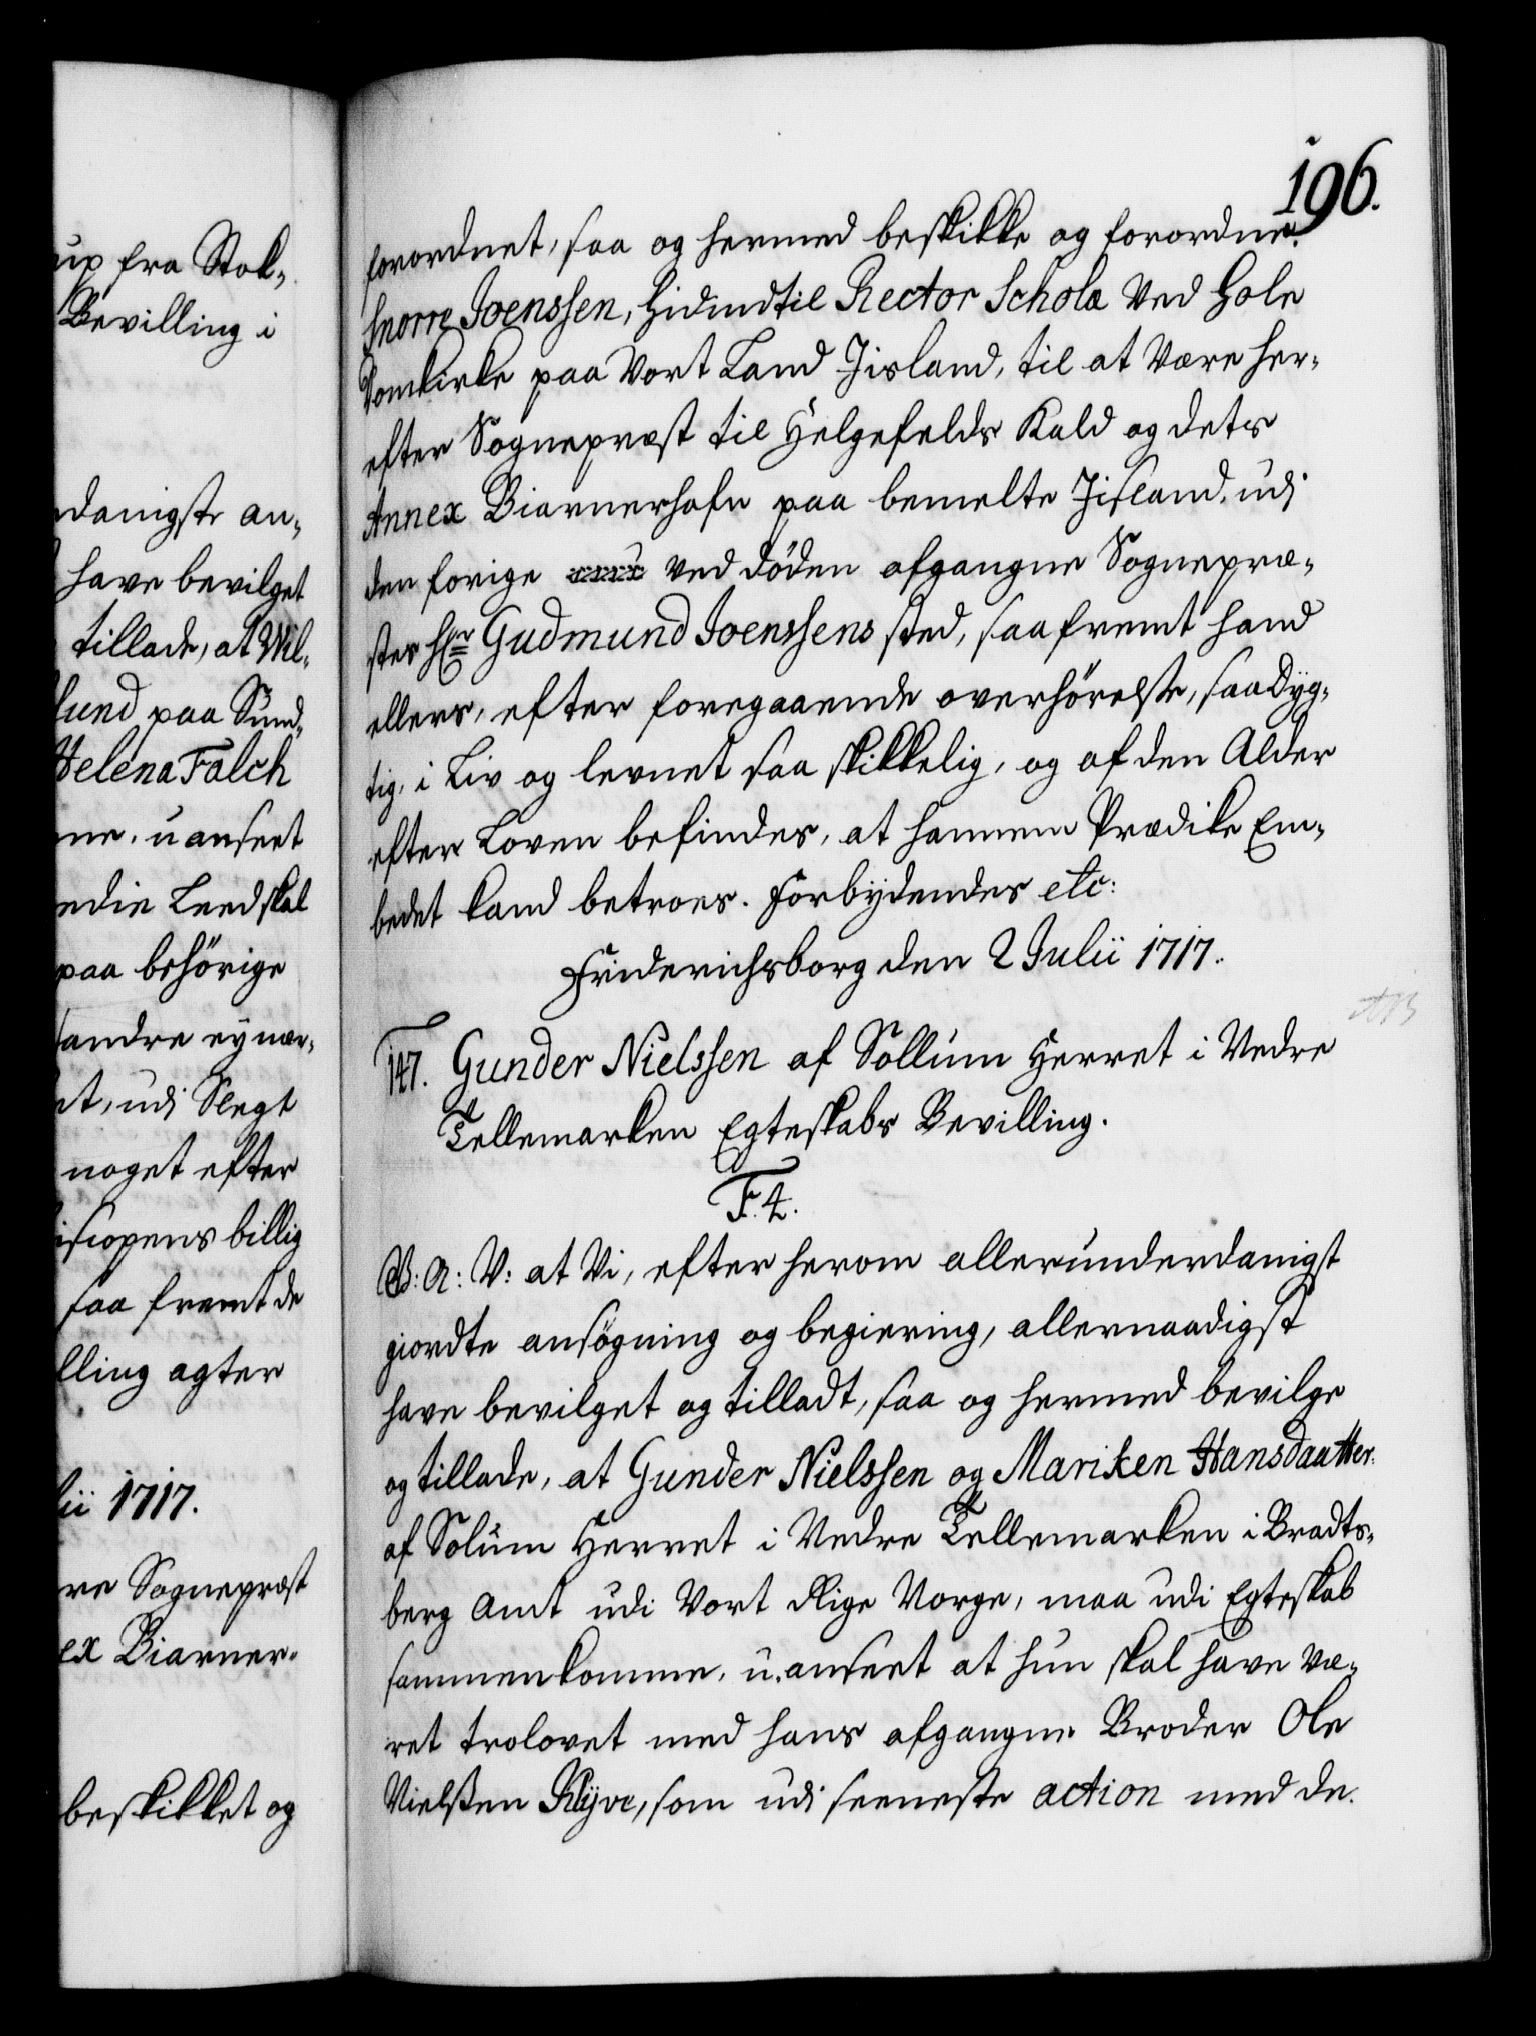 up fra Stok¬
Bevilling i
danigste an¬
have bevilget
tillade, at Wil¬
lund paa Sund¬
Helena Falch
me, uanseet
medie Leed skal
paa behörige
andre ej nær¬
et, udi Slegt
noget efter
iscopens billig
saa fremt de
lling agter
lii 1717.
re Sognepræst
ex Biarner¬
beskikket og
196.
forordnet, saa og hermed beskikke og forordne
Snorre Joenssen, hidindtil Rector Scholæ ved Hole
Domkirke paa Vort Land Jisland, til at være her¬
efter Sognepræst til Helgefelds Kald og dets
Annex Biarnerhafn paa bemelte Jisland, udj
den forige ved döden afgangne Sognepræ¬
stes Hr Gudmund Joenssens sted, saafremt hand
ellers, efter foregaaende overhörelse, saa dyg¬
tig, i Liv og levnet saa skikkelig, og af den Alder
efter Loven befindes, at hannem Prædike Em¬
bedet kand betroes. Forbydendes etc:
Friderichsborg den 2 Julii 1717.
147. Gunder Nielssen af Sollum Herret i Nedre
Tellemarken Egteskabs Bevilling.
F. 4.
G: A: V: at Vi, efter herom allerunderdanigst
giordte ansögning og begiering, allernaadigst
have bevilget og tilladt, saa og hermed bevilge
og tillade, at Gunder Nielssen og Mariken Hansdaatter
af Solum Herret i Nedre Tellemarken i Bradts¬
berg Amt udi Vort Rige Norge, maa udi Egteskab
sammenkomme, u.anseet at hun skal have væ¬
ret trolovet med hans afgangne Broder Ole
Nielssen Klyve, som udi seeneste action med de